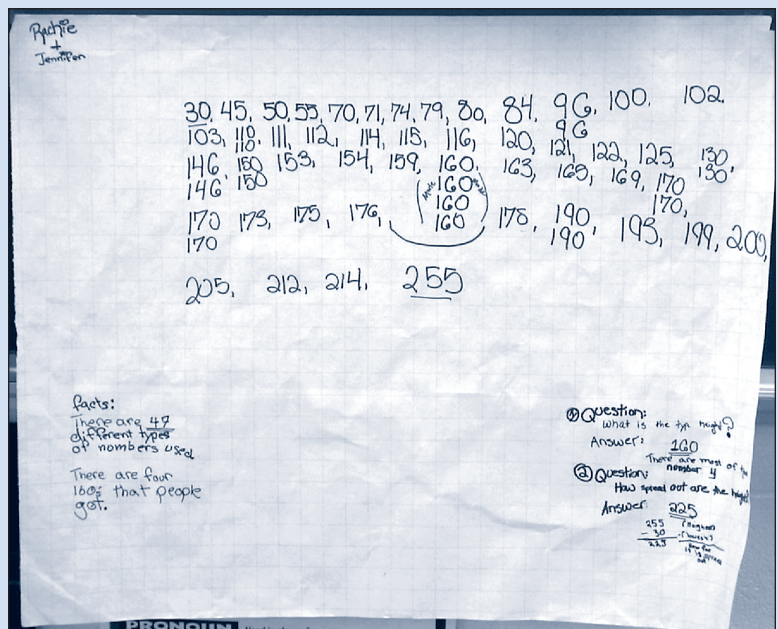 Rachie
+
Jennifer
30, 45, 50, 55, 70, 71, 74, 79, 80, 84, 96, 100, 102
96
103, 110, 111, 112, 114, 115, 116, 120, 121, 122, 125, 130,
110 130
146, 150 153, 154, 159, 160, 163, 165, 169, 170
146 150 160 170,
160
170 173, 175, 176, 160 178, 190, 193, 199, 200,
170 190
205, 212, 214, 255
facts:
There are 47
different types
of numbers used
There are four
160s that people
got.
① Question:
What is the typ height?
Answer: 160
There are most of the
number
② Question:
How spread out are the
Answer: 225
255 (highest)
- 30 (lowest)
225